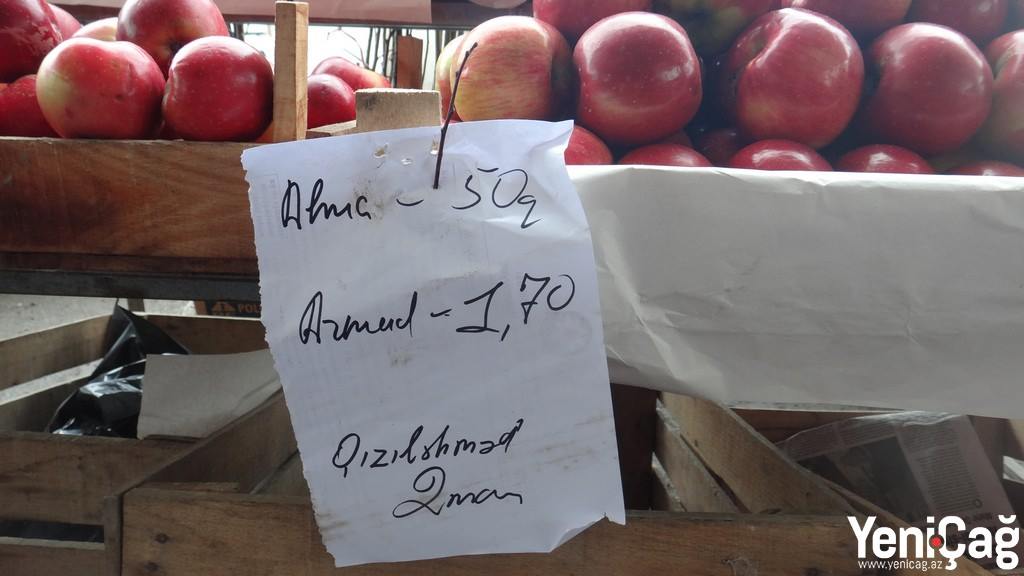 Alma - 50q
Armud - 1,70
Qızıləhməd
2 man
YeniÇağ
www.yenicag.az